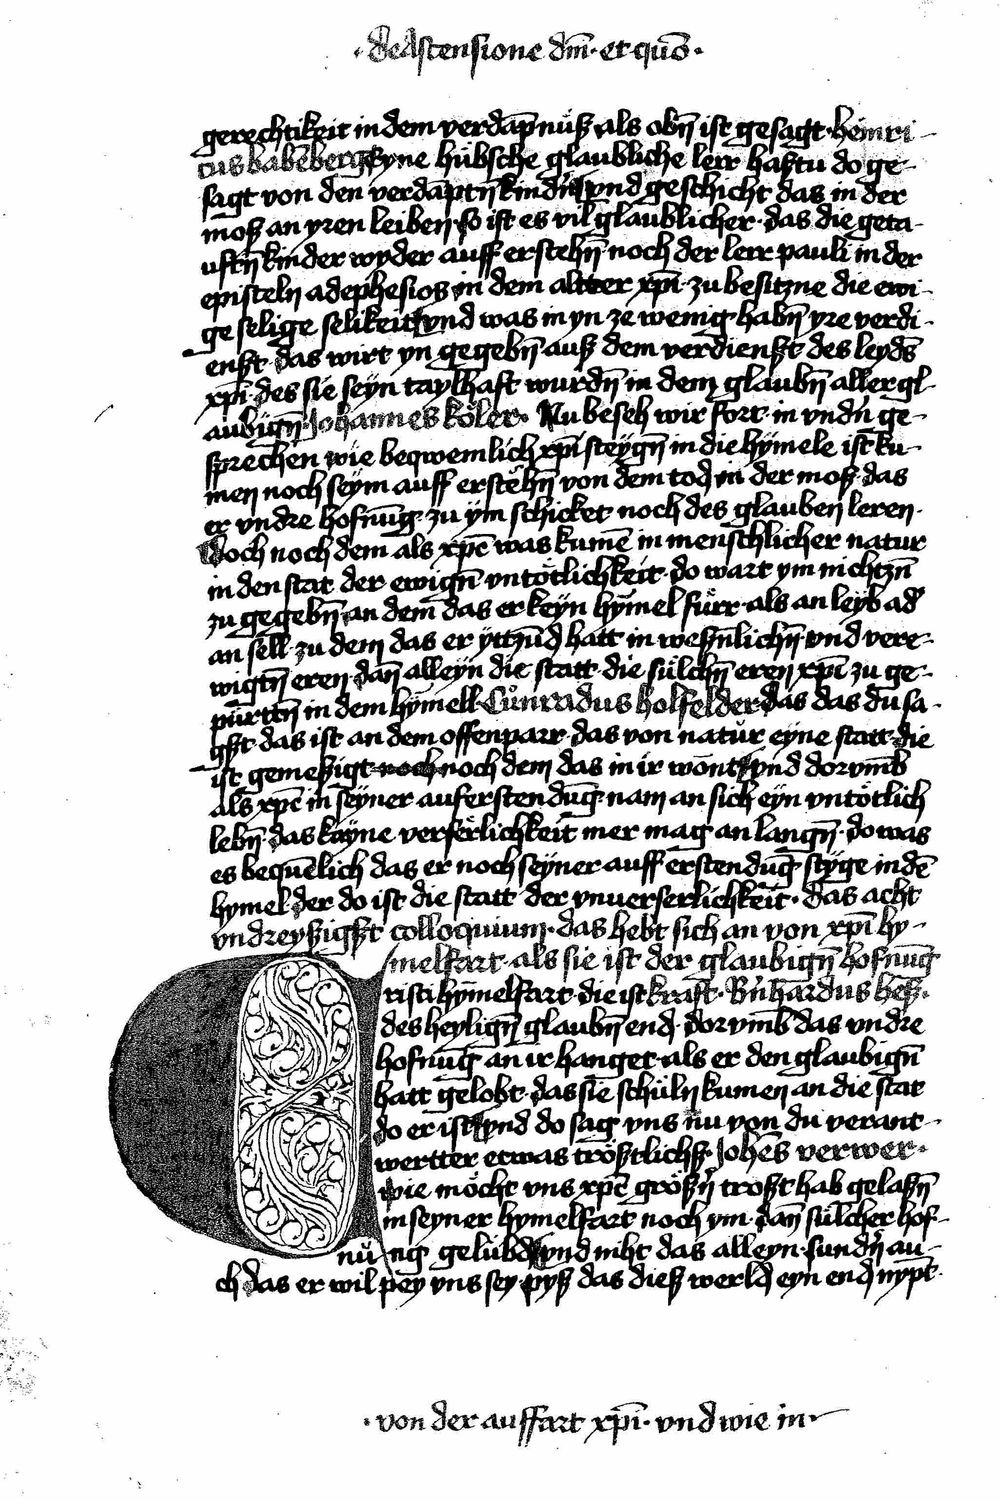 ·de Ascensione dm̄· et quō·
gerechtikeit in dem verdāpnüß als obn̄ ist gesagt· heinri-
cus babēberg Eyne hübsche glaubliche lerr hastu do ge-
sagt von den verdaptn̄ kindn̄ vnd geschicht das in der
moß an yren leiben so ist es vil glaublicher· das die geta-
uftn̄ kinder wyder auff erstehn̄ noch der lerr pauli in der
episteln adephesios in dem alter xpi· zu besitzne die ewi-
ge selige selikeit vnd was in yn ze wenig habn̄ yre verdi-
enßt· das wirt yn gegebn̄ auß dem verdienßt des leyds̄
xpi· des sie seyn taylhaft wurdn̄ in dem glaubn̄ aller gl-
aubign̄· Johannes köler· Nu beseh wir fort· in vndn̄ ge-
sprechen wie beqwemlich xpi steygn̄ in die hymele ist ku-
men noch seym auff erstehn̄ von dem tod in der moß das
er vndre hofnūg· zu ym schicket noch des glauben leren·
Doch noch dem als xpc̄ was kumē in menschlicher natur
in den stat der ewign̄ vntötlichkeit· do wart ym nichtzn̄
zu gegebn̄ an dem das er keyn hymel fürr· als an leyb ad̄
an sell· zu dem das er yttzūd hatt in weßnlichn̄ vnd vere-
wigtn̄ eren· dan̄ alleyn die statt· die sülchn̄ eren xpi zu ge-
pürttn̄ in dem hymell· Cůnradus holfelder das das du sa-
gßt· das ist an dem offenparr· das von natur eyne statt· die
ist gemeßigt noch noch dem das in ir wont vnd dorvmb
als xpc̄ in seyner auferstendūg· nam an sich eyn vntötlich
lebn̄· das kayne verserlichkeit mer mag an langn̄· do was
es bequēlich das er noch seyner auff erstendūg styge in dē
hymel der do ist die statt· der vnuerserlichkeit· das acht
vndreyßigßt colloquium· das hebt sich an von xpi hy-
melfart· als sie ist der glaubign̄ hofnūg
risti hymelfart· die ist kraft· Bn̄hardus heß·
des heylign̄ glaubn̄ end· dorvmb das vndre
hofnūg an ir hanget· als er den glaubign̄
hatt gelobt· das sie schüln kumen an die stat
do er ist vnd do sag vns nu von du verant-
wertter etwas tröstlichß· Johēs verwer·
wie möcht vns xpc̄ größn̄ troßt hab gelaßn̄
in seyner hymelfart noch ym· dan̄ sülcher hof-
nu-ng gelübd vnd niht das alleyn· sundn̄ au-
ch das er wil pey vns sey pyß das dieß werld eyn end nypt·
·von der auffart xpi· vnd wie in·